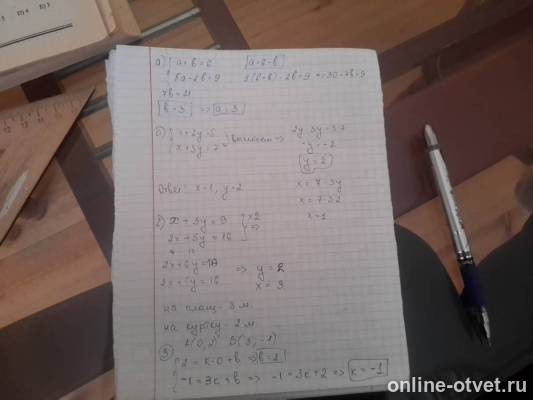 а) { a+b=6 [a=6-b]
5a-2b=9 5(6-b)-2b=9 => 30-7b=9
7b=21
[b=3] => [a=3]
б) { x+2y=5 } вычитаем => 2y-3y=5-7
x+3y=7 -y=-2
(y=2)
Ответ: x=1, y=2 x=7-3y
x=7-3·2
x=1
x+3y=9 } x2
2x+5y=16 =>
2x+6y=18 => y=2
2x+5y=16 x=3
на плащ - 3 м
на куртку - 2 м
A(0;2) B(3;-1)
③ { 2=k·0+b => [b=2]
-1=3k+b => -1=3k+2 => [k=-1]
online-otvet.ru